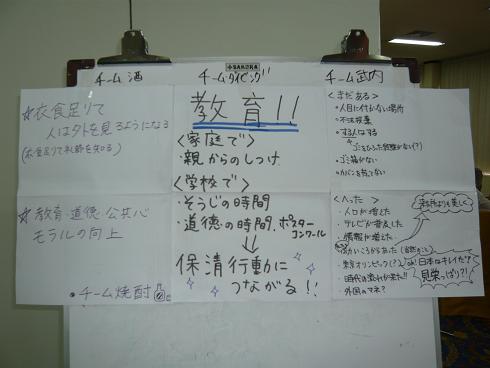 SAKURA
チーム 酒
☆衣食足りて
人は外を見るようになる
(衣食足りて礼節を知る)
☆教育・道徳・公共心
モラルの向上
チーム焼酎
チームダイビング
教育!!
<家庭で>
・親からのしつけ
<学校で>
・そうじの時間
・道徳の時間、ポスター
コンクール
↓
保清行動に
つながる!!
チーム 武内
<まだある>
・人目に付かない場所
・不法投棄
・する人はする
・ゴミ箱がない
<へった>
・人口が増えた
・テレビが普及した
・情報が増えた
・東京オリンピック(?)
・時代の流れが来た!!
・外国のマネ?
日本はキレイだ?
見栄っぱり?!